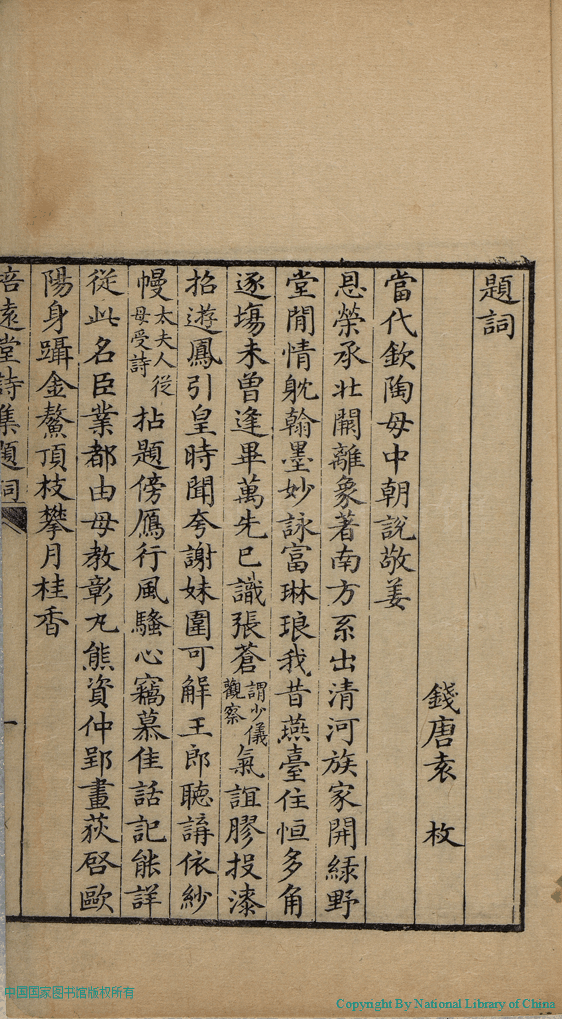 題詞
錢唐袁枚
當代欽陶母中朝說敬姜
恩榮承壯闕離象著南方系出清河族家開綠野
堂閒情躭翰墨妙詠富琳琅我昔燕臺住恒多角
逐塲未曾逢畢萬先已識張蒼謂少儀觀察氣誼膠投漆
招遊鳳引皇時聞夸謝妹圍可解王郎聽講依紗
幔太夫人從母受詩拈題傍鴈行風騷心竊慕佳話記能詳
從此名臣業都由母教彰丸熊資仲郢畫荻啓歐
陽身躡金鰲頂枝攀月桂香
培遠堂詩集題詞
一
中国国家图书馆版权所有
Copyright By National Library of China